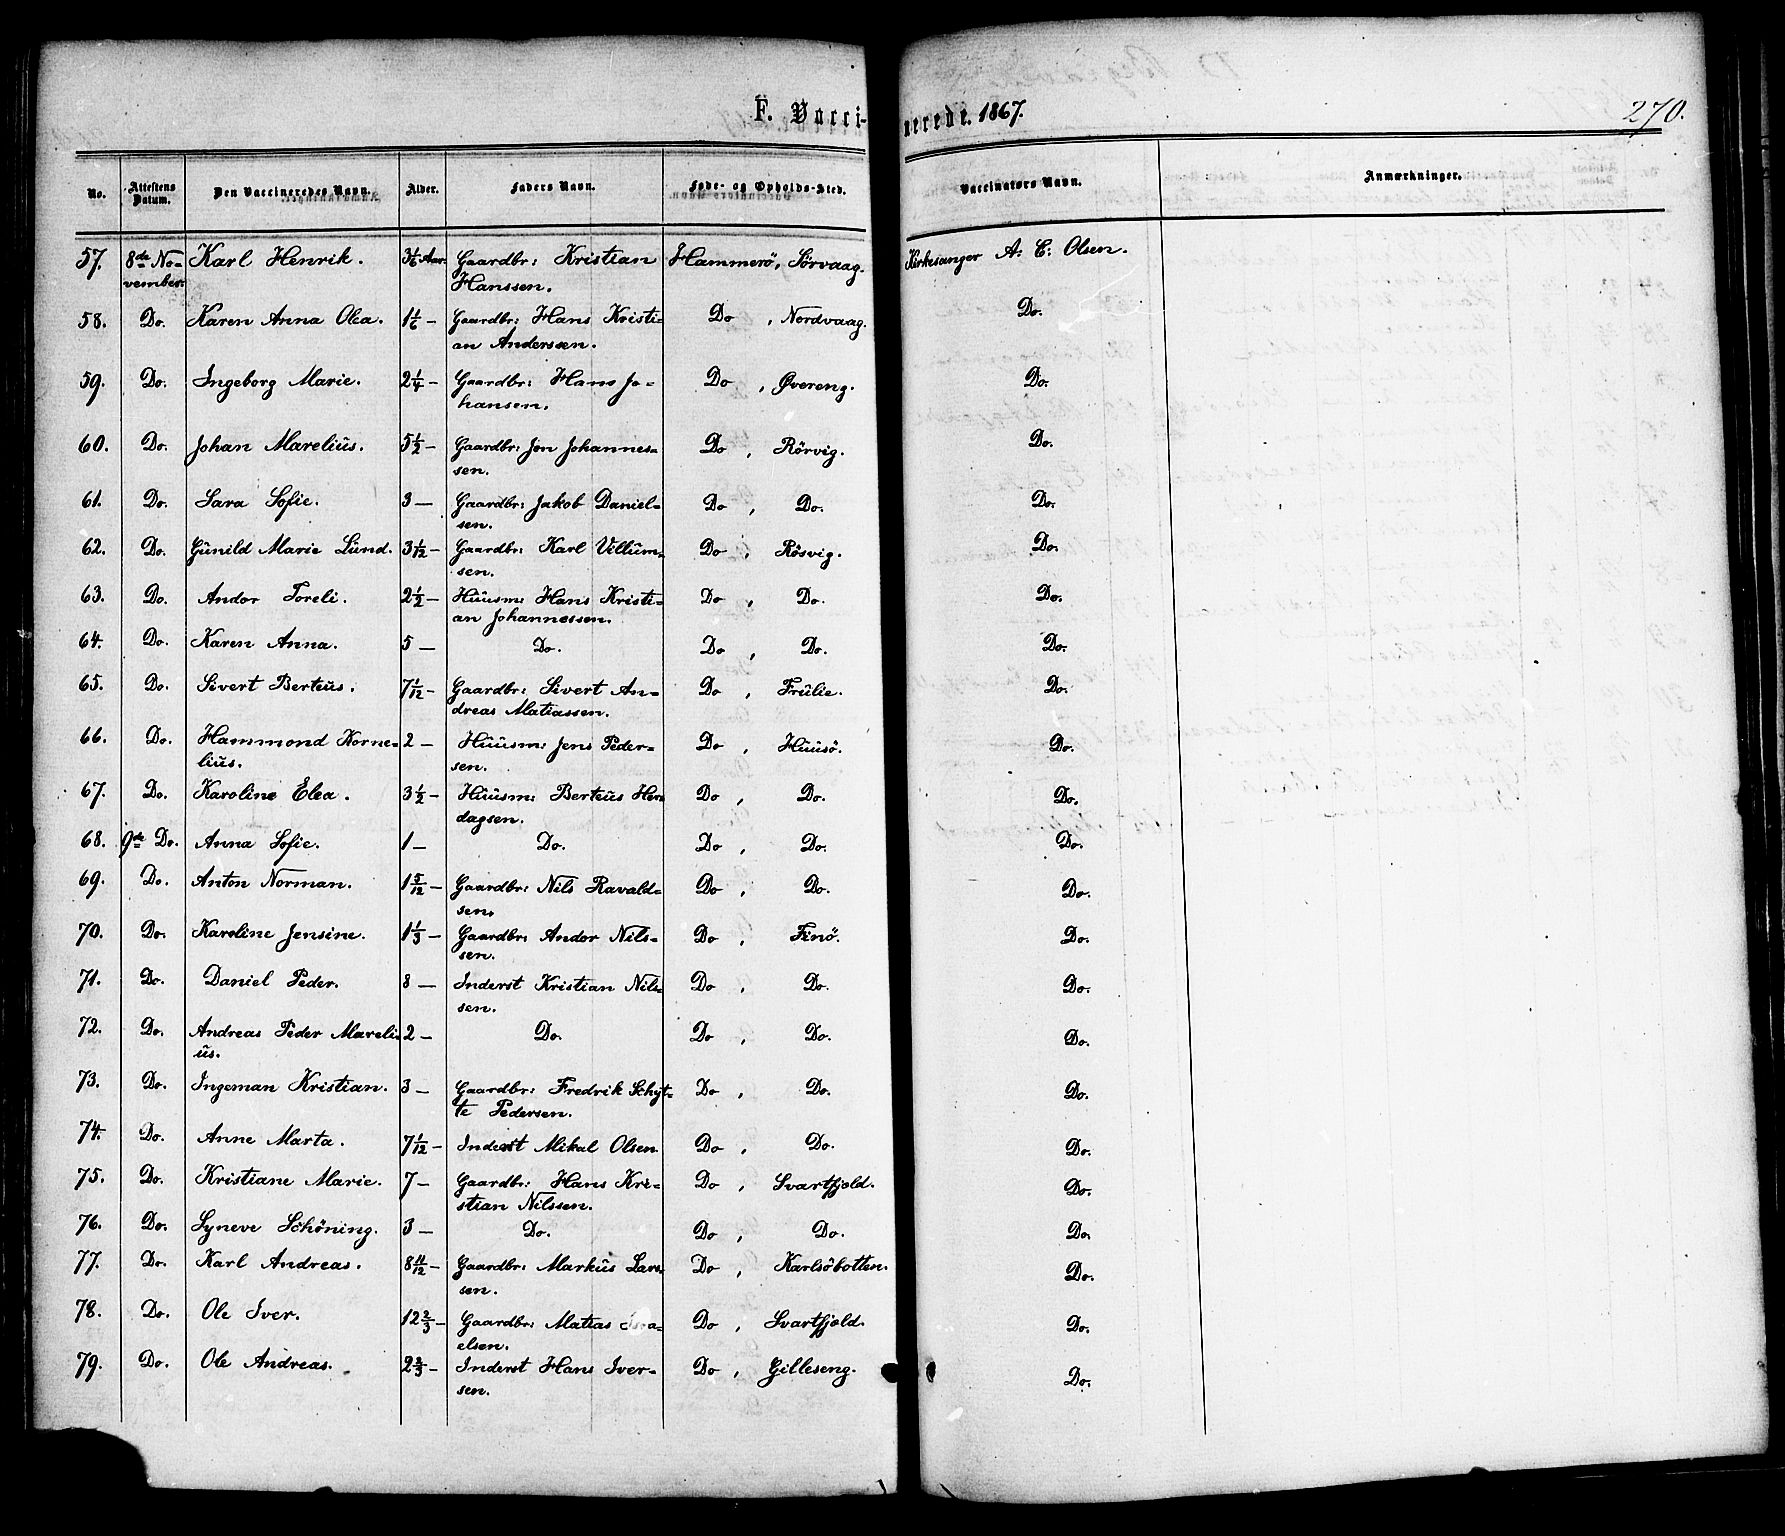 F. Vaccinerede. 1867.
270.
No. Attestens Datum. Den Vaccineredes Navn. Alder. Faders Navn. Føde- og Opholds-Sted. Vaccinators Navn. Anmærkninger.
57. 8de No- Karl Henrik. 3 1/6 Aar. Gaardbr: Kristian Hammerö, Sörvaag. Kirkesanger A. C. Olsen.
vember. Hanssen.
58. Do. Karen Anna Olea. 1 1/6 — Gaardbr: Hans Kristi- Do , Nordvaag. Do.
an Anderssen.
59. Do. Ingeborg Marie. 2 1/4 — Gaardbr: Hans Jo- Do , Øvereng. Do.
hansen.
60. Do. Johan Marelius. 5 1/2 — Gaardbr: Jon Johannes- Do , Rörvig. Do.
sen.
61. Do. Sara Sofie. 3 — Gaardbr: Jakob Daniel- Do , Do. Do.
sen.
62. Do. Gunild Marie Lund. 3 1/12 — Gaardbr: Karl Villum- Do , Rösvig. Do.
sen.
63. Do. Andor Toreli. 2 1/2 — Huusm: Hans Kristi- Do , Do. Do.
an Johannessen.
64. Do. Karen Anna. 5 — Do. Do , Do. Do.
65. Do. Sivert Berteus. 7 1/12 — Gaardbr: Sivert An- Do , Frulie. Do.
dreas Matiassen.
66. Do. Hammond Korne- 2 — Huusm: Jens Peder- Do , Huusö. Do.
lius. sen.
67. Do. Karoline Elea. 3 1/2 — Huusm: Berteus Her- Do , Do. Do.
dagsen.
68. 9de Do. Anna Sofie. 1 — Do. Do , Do. Do.
69. Do. Anton Norman. 1 5/12 — Gaardbr: Nils Ravald- Do , Do. Do.
sen.
70. Do. Karoline Jensine. 1 1/3 — Gaardbr: Andor Nils- Do , Finö. Do.
sen.
71. Do. Daniel Peder. 8 — Inderst Kristian Nils- Do , Do. Do.
sen.
72. Do. Andreas Peder Mareli- 2 — Do. Do , Do. Do.
us.
73. Do. Ingeman Kristian. 3 — Gaardbr: Fredrik Schyt- Do , Do. Do.
te Pedersen.
74. Do. Anne Marta. 7 1/12 — Inderst Mikal Olsen. Do , Do. Do.
75. Do. Kristiane Marie. 7 — Gaardbr: Hans Kri- Do , Svartfjeld. Do.
stian Nilssen.
76. Do. Syneve Schöning. 3 — Do. Do , Do. Do.
77. Do. Karl Andreas. 8 11/12 — Gaardbr: Markus Lars- Do , Karlsöbotten. Do.
sen.
78. Do. Ole Iver. 12 2/3 — Gaardbr: Matias Isra- Do , Svartfjeld. Do.
elsen.
79. Do. Ole Andreas. 2 2/3 — Inderst Hans Iver- Do , Gilleseng. Do.
sen.